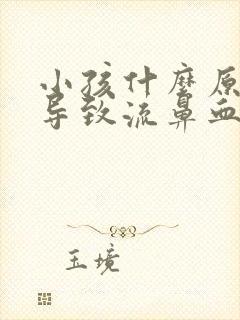 小孩什麽原
导致流鼻血
玉境